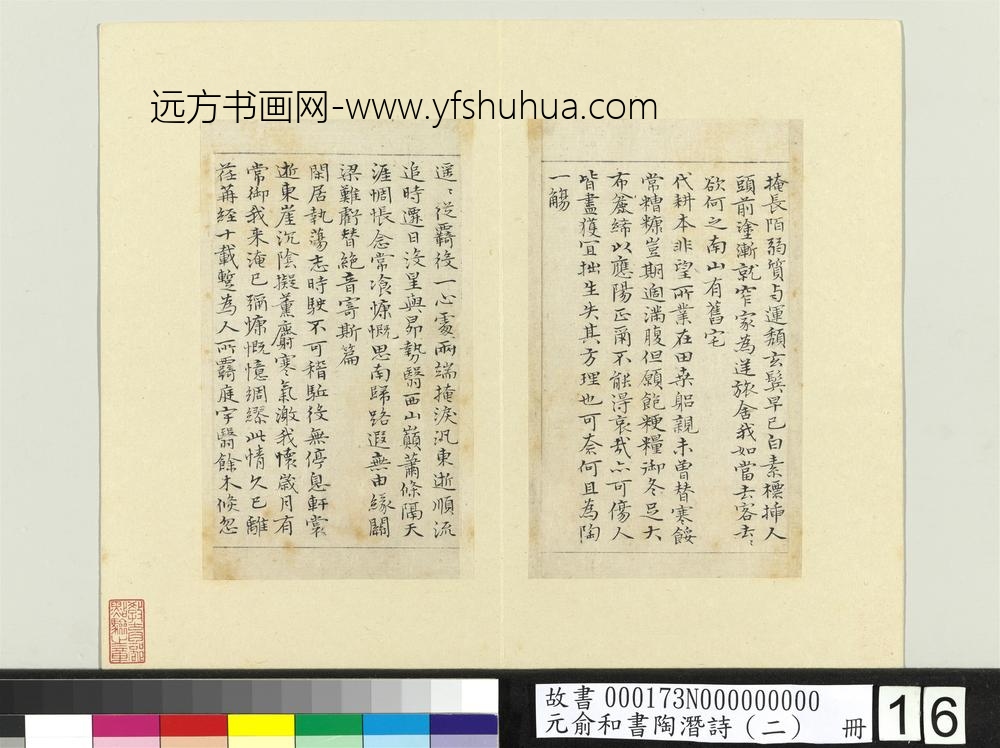 远方书画网-www.yfshuhua.com
掩長陌弱質与運頹玄鬓早已白素標插人
頭前塗漸就窄家為逆旅舍我如當去客去〻
欲何之南山有舊宅
代耕本非望所業在田桑躬親未曾替寒餒
常糟糠豈期過滿腹但願飽粳糧御冬足大
布麄絺以應陽正爾不能得哀哉亦可傷人
皆盡獲宜拙生失其方理也可奈何且為陶
一觴
遥〻從羇役一心處兩端掩淚汎東逝順流
追時遷日沒星與昴勢翳西山巔蕭條隔天
涯惆悵念常飡慷慨思南歸路遐無由緣關
梁難虧替絕音寄斯篇
閑居執蕩志時駛不可稽駈役無停息軒裳
逝東崖沉陰擬薰麝寒氣激我懷歲月有
常御我来淹已彌慷慨憶綢繆此情久已離
荏苒經十載蹔為人所羇庭宇翳餘木倐忽
教育部
點驗之章
故書 000173N000000000
元俞和書陶潛詩（二） 冊
16